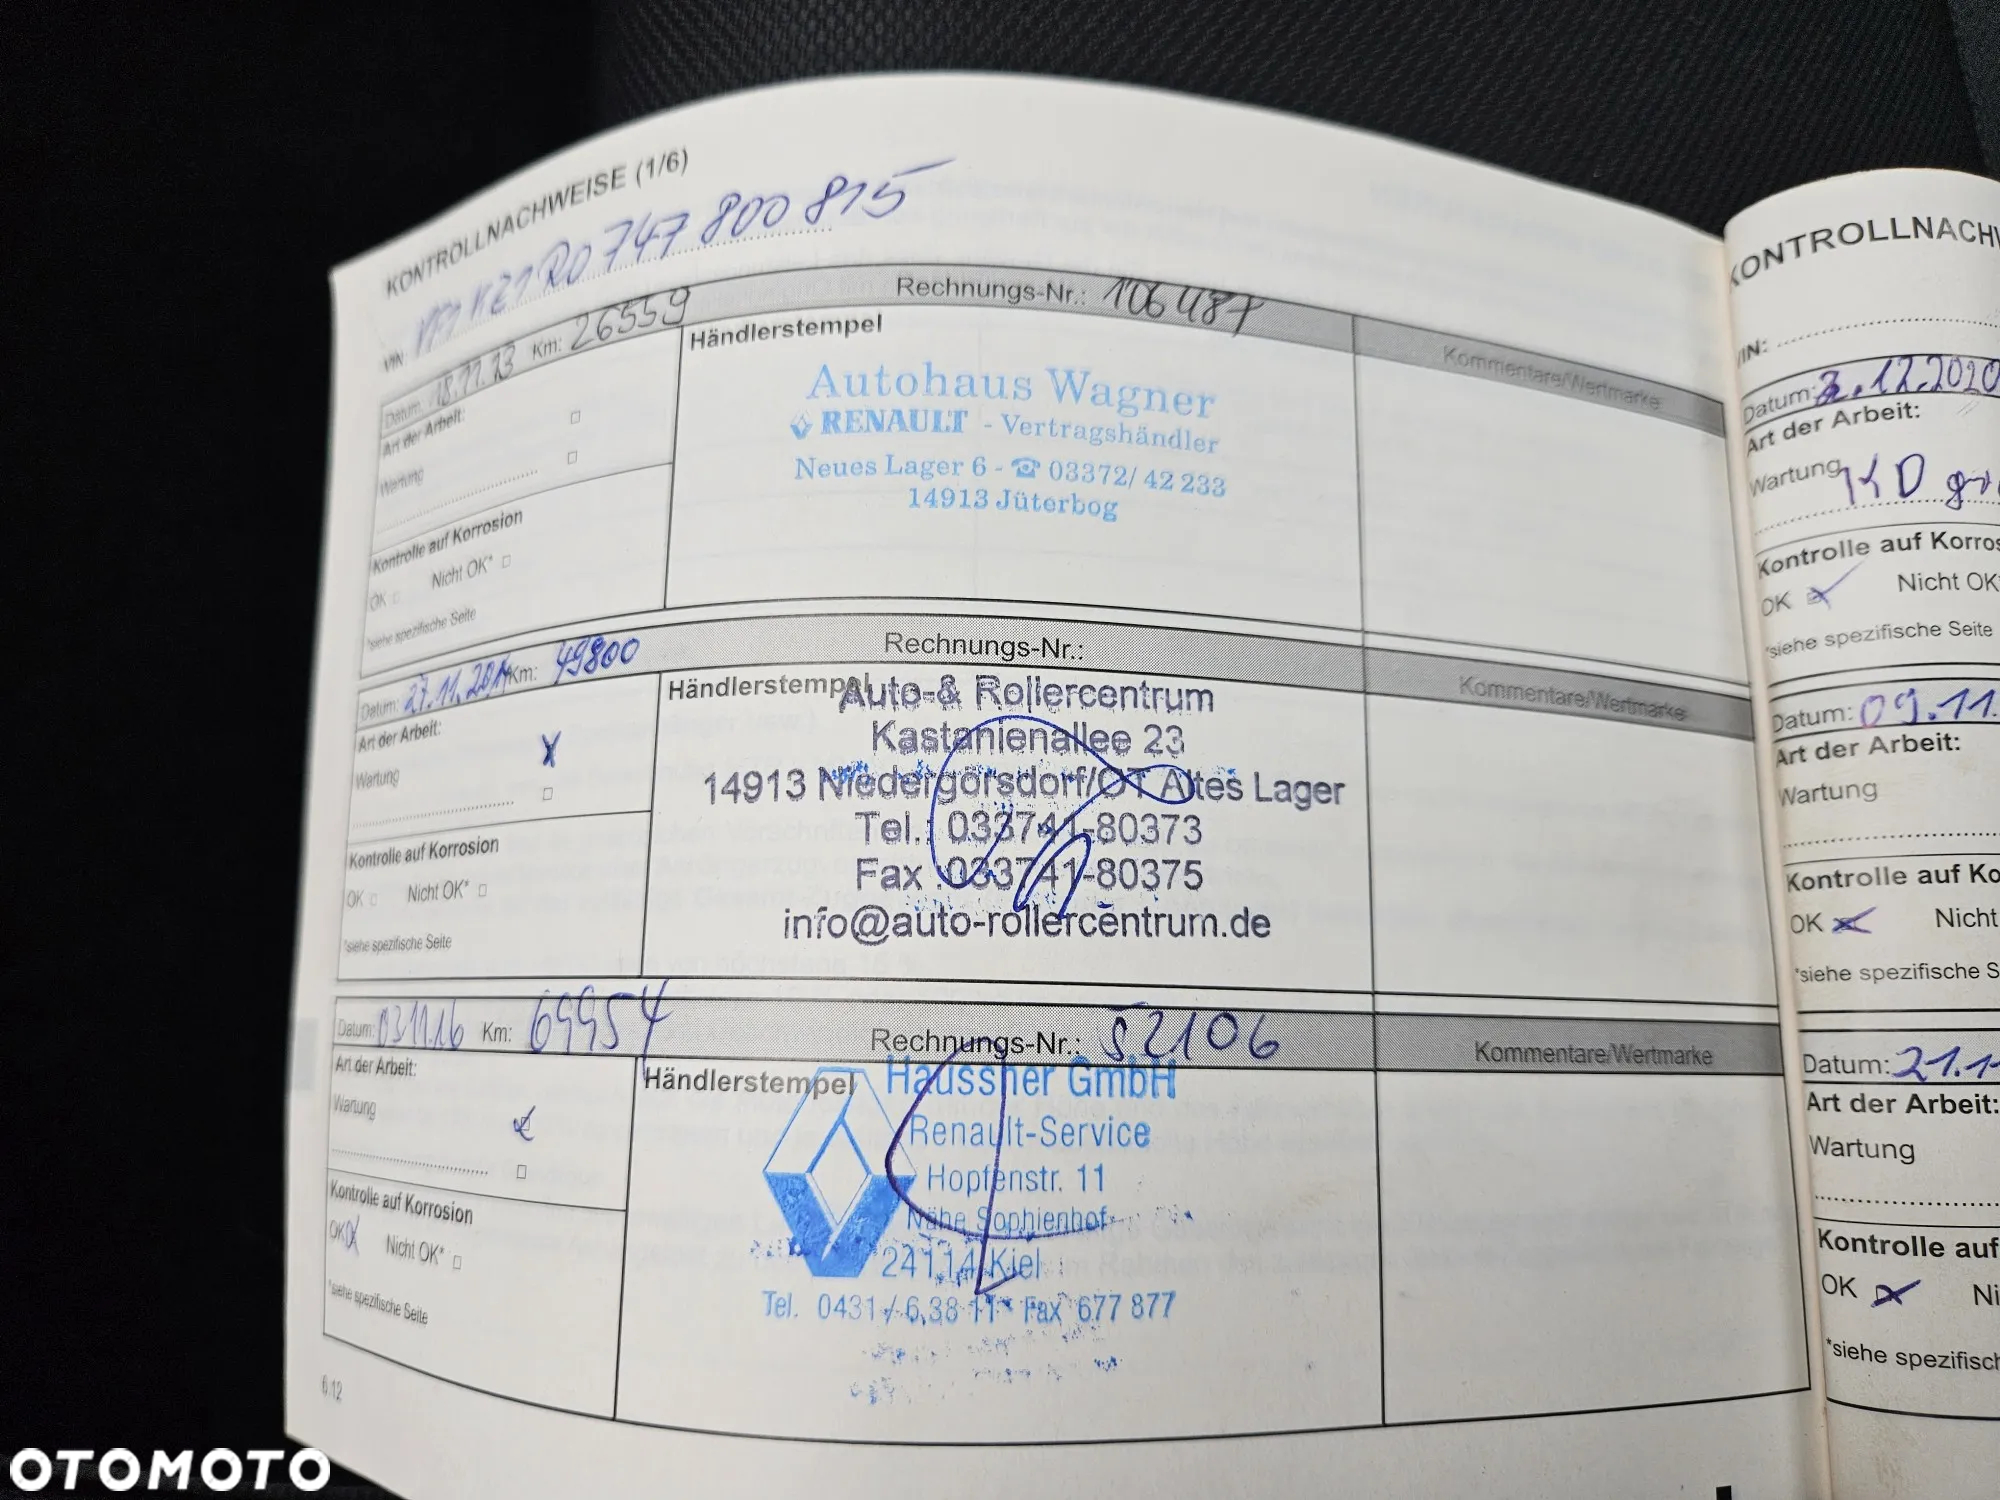 KONTROLLNACHWEISE (1/6)
VIN: VF1KZ1R0747800815
Datum: 18.11.13 Km: 26559 Rechnungs-Nr.: 106487
Kommentare/Wertmarke
Art der Arbeit:
Wartung
Kontrolle auf Korrosion
OK Nicht OK*
*siehe spezifische Seite
Händlerstempel
Autohaus Wagner
RENAULT - Vertragshändler
Neues Lager 6 - ☎ 03372/ 42 233
14913 Jüterbog
Datum: 27.11.201 Km: 49800 Rechnungs-Nr.:
Kommentare/Wertmarke
Art der Arbeit:
Wartung
Kontrolle auf Korrosion
OK Nicht OK*
*siehe spezifische Seite
Händlerstempel
Auto-& Rollercentrum
Kastanienallee 23
14913 Niedergörsdorf/OT Altes Lager
Tel.: 033741-80373
Fax :033741-80375
info@auto-rollercentrum.de
Datum: 03.11.16 Km: 69954 Rechnungs-Nr.: 52106
Kommentare/Wertmarke
Art der Arbeit:
Wartung
Kontrolle auf Korrosion
OK Nicht OK*
*siehe spezifische Seite
Händlerstempel
Haussner GmbH
Renault-Service
Hopfenstr. 11
Nähe Sophienhof
24114 Kiel
Tel. 0431 / 6 38 11 * Fax 677 877
6.12
KONTROLLNACHW
VIN:
Datum: 2.12.2020
Art der Arbeit:
Wartung KD
Kontrolle auf Korros
OK Nicht OK
*siehe spezifische Seite
Datum: 09.11.
Art der Arbeit:
Wartung
Kontrolle auf Ko
OK Nicht
*siehe spezifische S
Datum: 21.1
Art der Arbeit:
Wartung
Kontrolle auf
OK Ni
*siehe spezifisch
OTOMOTO